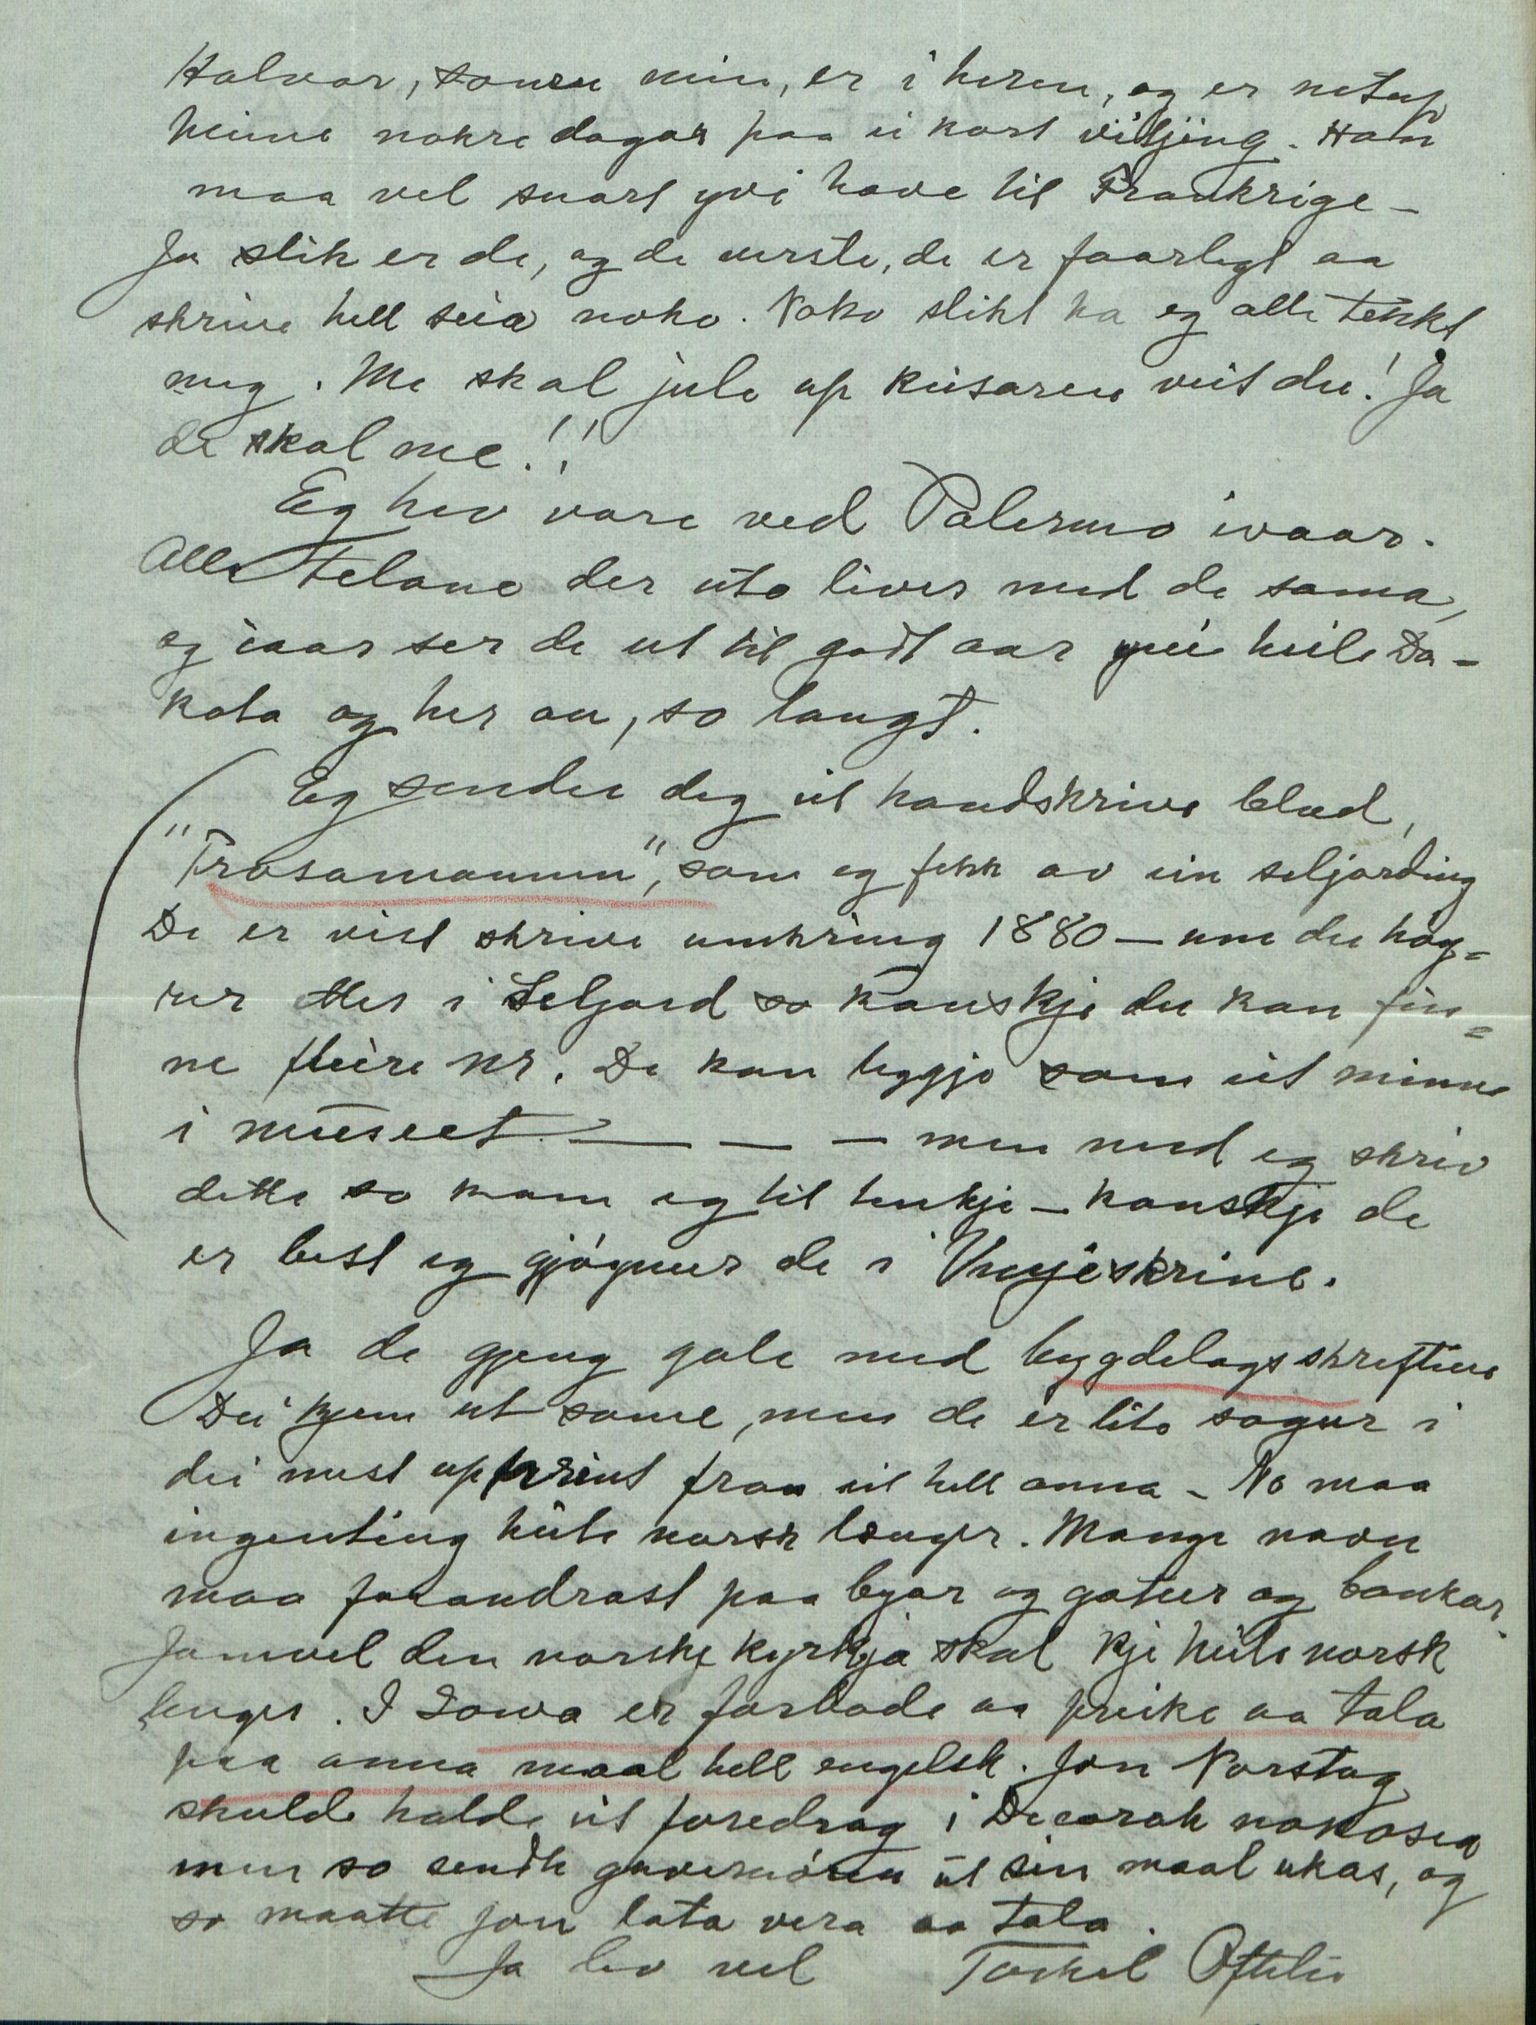 Halvor, sonen min, er i heren, og er netup
heime nokre dagar paa ei kort vitjing. Han
maa vel snart yvi have til Frankrige —
Ja slik er de, og de verste, de er faarlegt aa
skrive hell seia noko. Noko slikt ha eg alli tenkt
mig. Me skal jule up keisaren veit du! Ja
de skal me!!
Eg hev vore ved Palermo ivaar.
Alle telane der uto liver med de sama,
og iaar ser de ut til godt aar yvi heile Da-
kota og her au, so langt.
Eg sender deg eit handskrive blad,
"Frosamannen", som eg fekk av ein seljording
De er vist skrive umkring 1880 — um du høy=
rer etter i Seljord so kanskje du kan fin=
ne fleire nr. De kan leggja som eit minne
i museet. — — — men med eg skriv
dette so kom eg til tenkje — kanskje de
er best eg gjøymer de i Vinjeskrine.
Ja de gjeng gale med bygdelagsskrifterne
Dei kjem ut some, men de er lite sogur i
dei mest upprint fraa eit hell anna – No maa
ingenting heite norsk lenger. Mange navn
maa forandrast paa byar og gatur og bankar.
Jamvel den norske kyrkja skal kje heite norsk
lenger. I Iowa er forbode aa preike aa tala
paa anna maal hell engelsk. Jon Norstog
skulde halde eit foredrag i Decorah nokosea
men so sendte guvernøren ut sin maal ukas, og
so maatte Jon lata vera aa tala.
Ja lev vel Torkel Oftelie